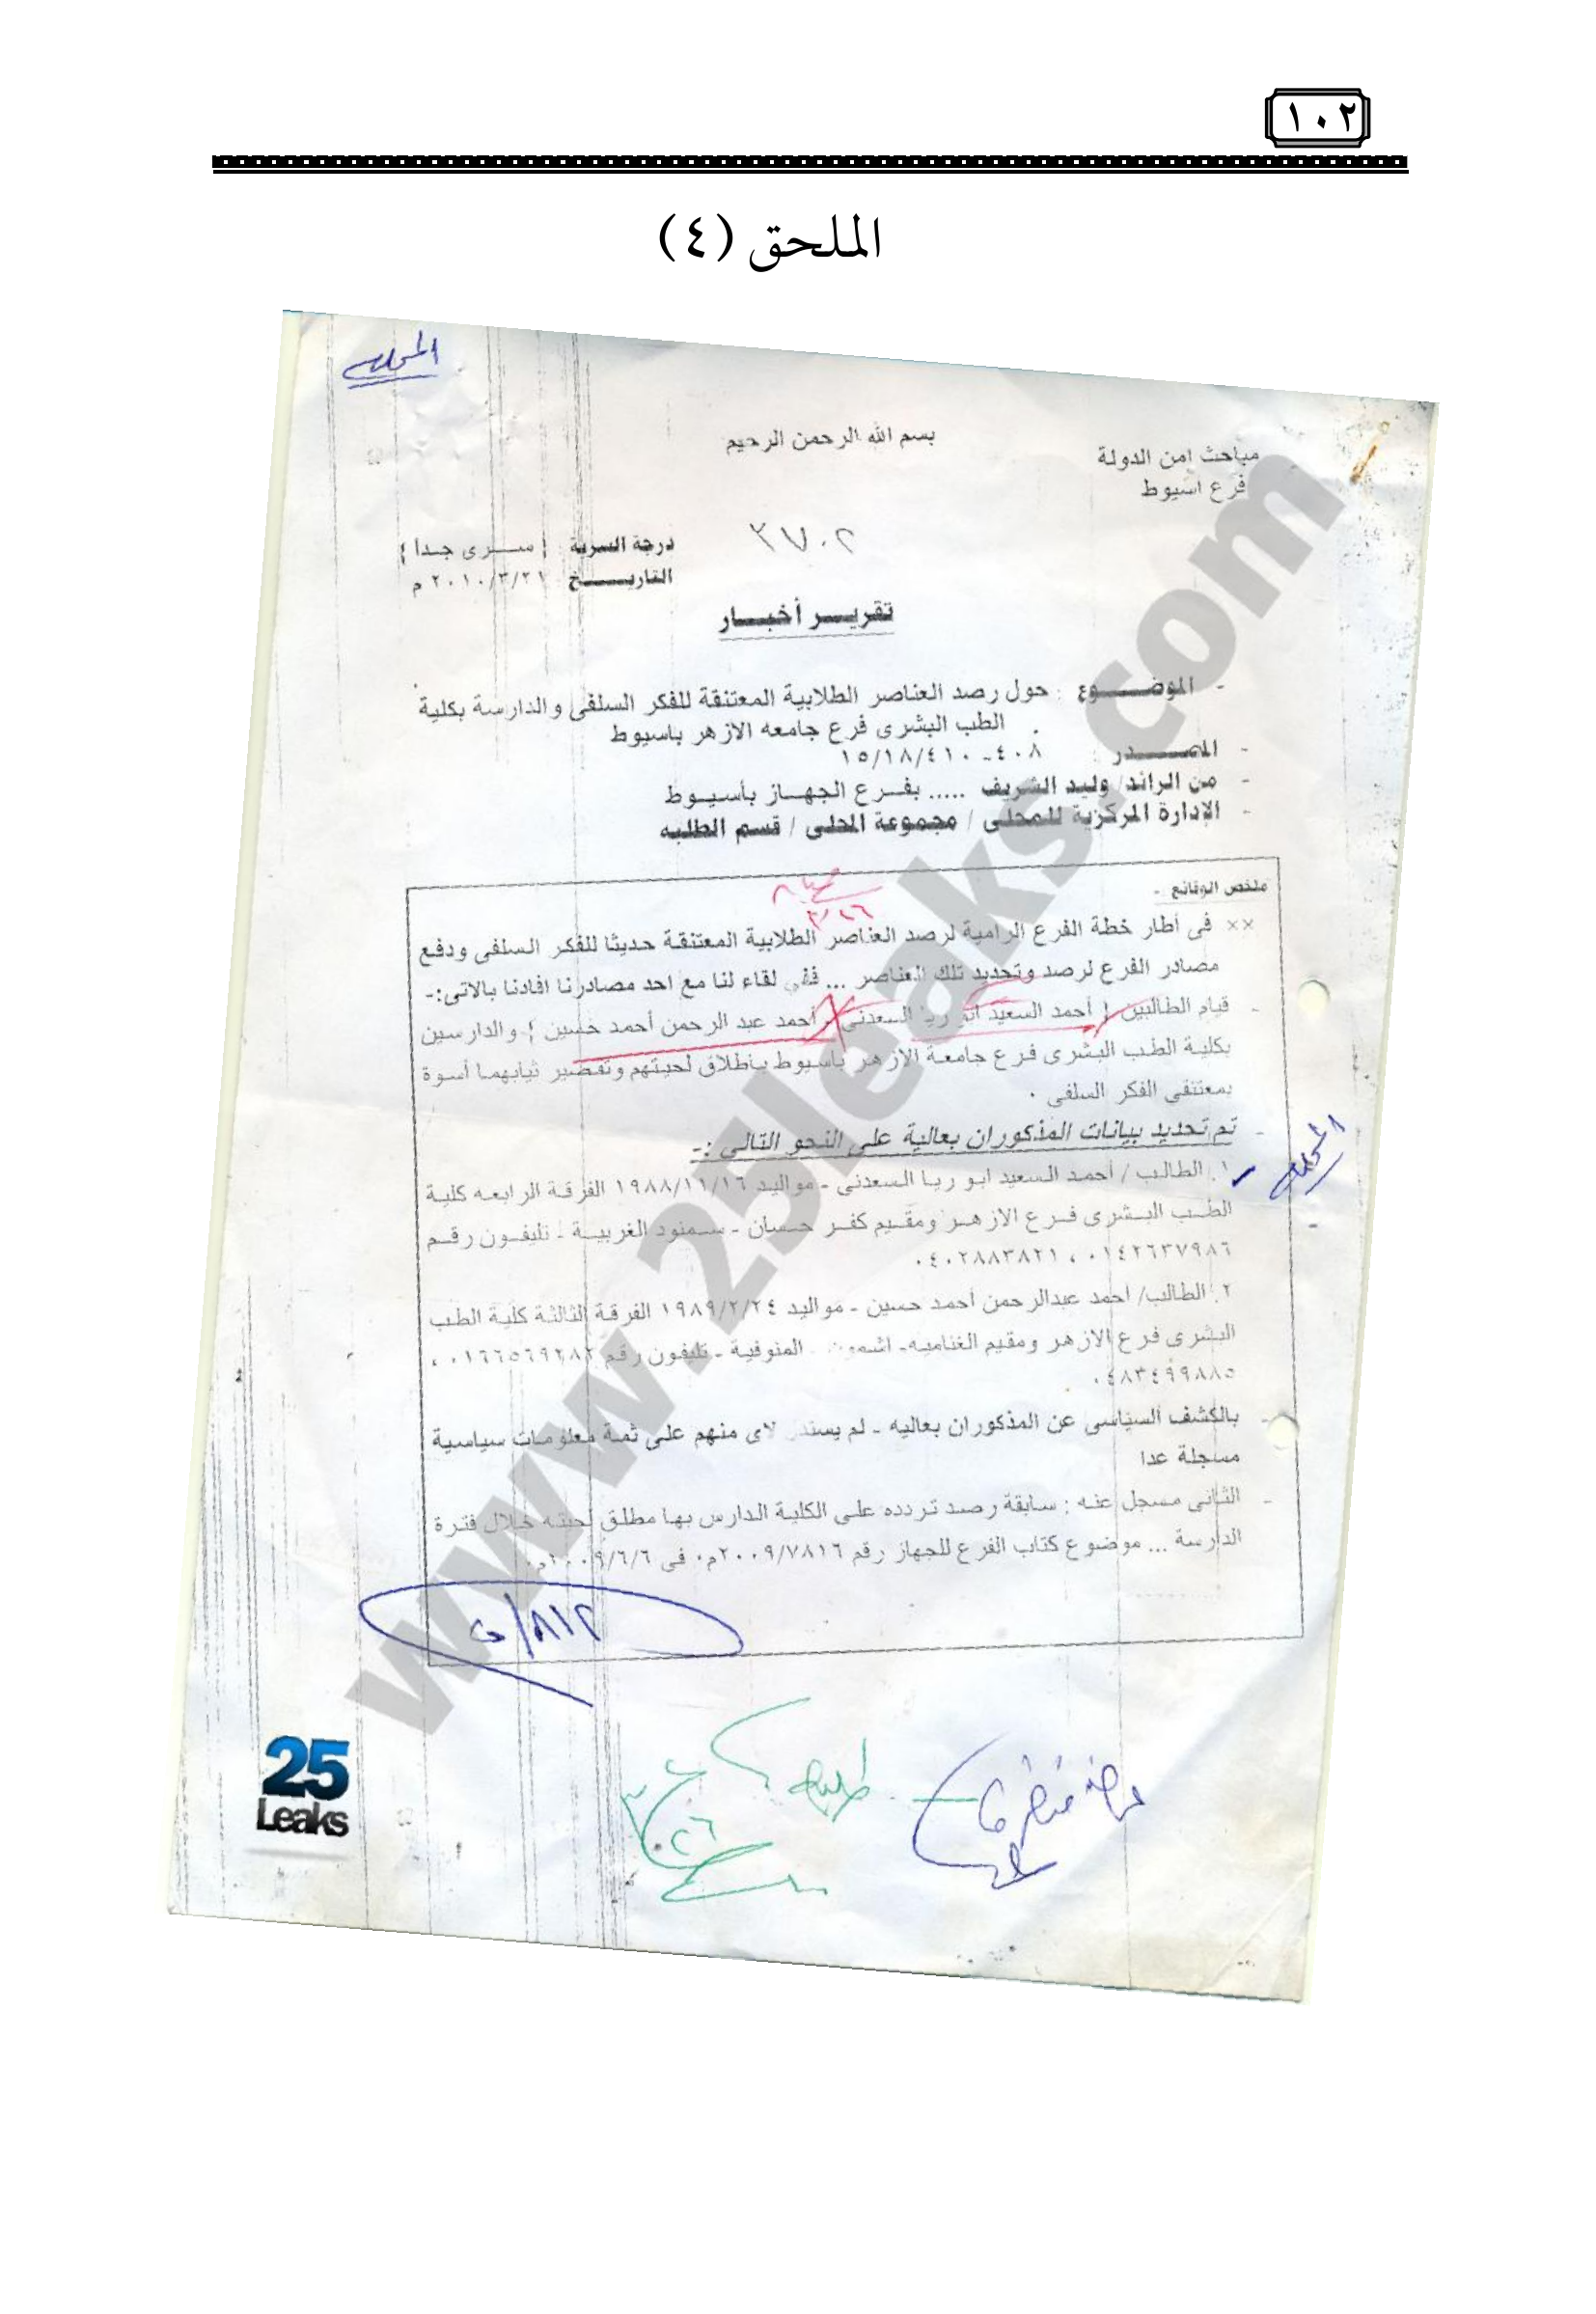 ١٠٢
الملحق (٤)
بسم الله الرحمن الرحيم
مباحث امن الدولة
فرع اسيوط
٣٧٠٢
درجة السرية : { سرى جدا }
التاريخ ٢٠١٠/٣/٢١ م
تقرير أخبار
- الموضوع : حول رصد العناصر الطلابية المعتنقة للفكر السلفى والدارسة بكلية
الطب البشرى فرع جامعه الازهر باسيوط
- المصدر : ٤٠٨-١٥/١٨/٤١٠
- من الرائد/ وليد الشريف ..... بفرع الجهاز بأسيوط
- الإدارة المركزية للمحلى / مجموعة المحلى / قسم الطلبه
ملخص الوقائع -
×× فى أطار خطة الفرع الرامية لرصد العناصر الطلابية المعتنقة حديثا للفكر السلفى ودفع
مصادر الفرع لرصد وتحديد تلك العناصر ... ففى لقاء لنا مع احد مصادرنا افادنا بالاتى:-
- قيام الطالبين { أحمد السعيد ابو ريا السعدنى ، أحمد عبد الرحمن أحمد حسين } والدارسين
بكلية الطب البشرى فرع جامعة الازهر باسيوط بأطلاق لحيتهم وتقصير ثيابهما أسوة
بمعتنقى الفكر السلفى .
- تم تحديد بيانات المذكوران بعالية على النحو التالى :-
١. الطالب / أحمد السعيد ابو ريا السعدنى - مواليد ١٩٨٨/١١/١٦ الفرقة الرابعه كلية
الطب البشرى فرع الازهر ومقيم كفر حسان - سمنود الغربية - تليفون رقم
٠١٤٢٦٣٧٩٨٦ ، ٠٤٠٢٨٨٣٨٢١
٢. الطالب/ أحمد عبدالرحمن أحمد حسين - مواليد ١٩٨٩/٢/٢٤ الفرقة الثالثة كلية الطب
البشرى فرع الازهر ومقيم الغناميه- اشمون - المنوفية - تليفون رقم ٠١٦٦٥٦٩٢٨٢ ،
٠٤٨٣٤٩٩٨٨٥
- بالكشف السياسى عن المذكوران بعاليه - لم يستدل لاى منهم على ثمة معلومات سياسية
مسجلة عدا
- الثانى مسجل عنه : سابقة رصد تردده على الكلية الدارس بها مطلق لحيته خلال فترة
الدارسة ... موضوع كتاب الفرع للجهاز رقم ٢٠٠٩/٧٨١٦م٠ فى ٢٠٠٩/٦/٦م٠
www.25leaks.com
25
Leaks